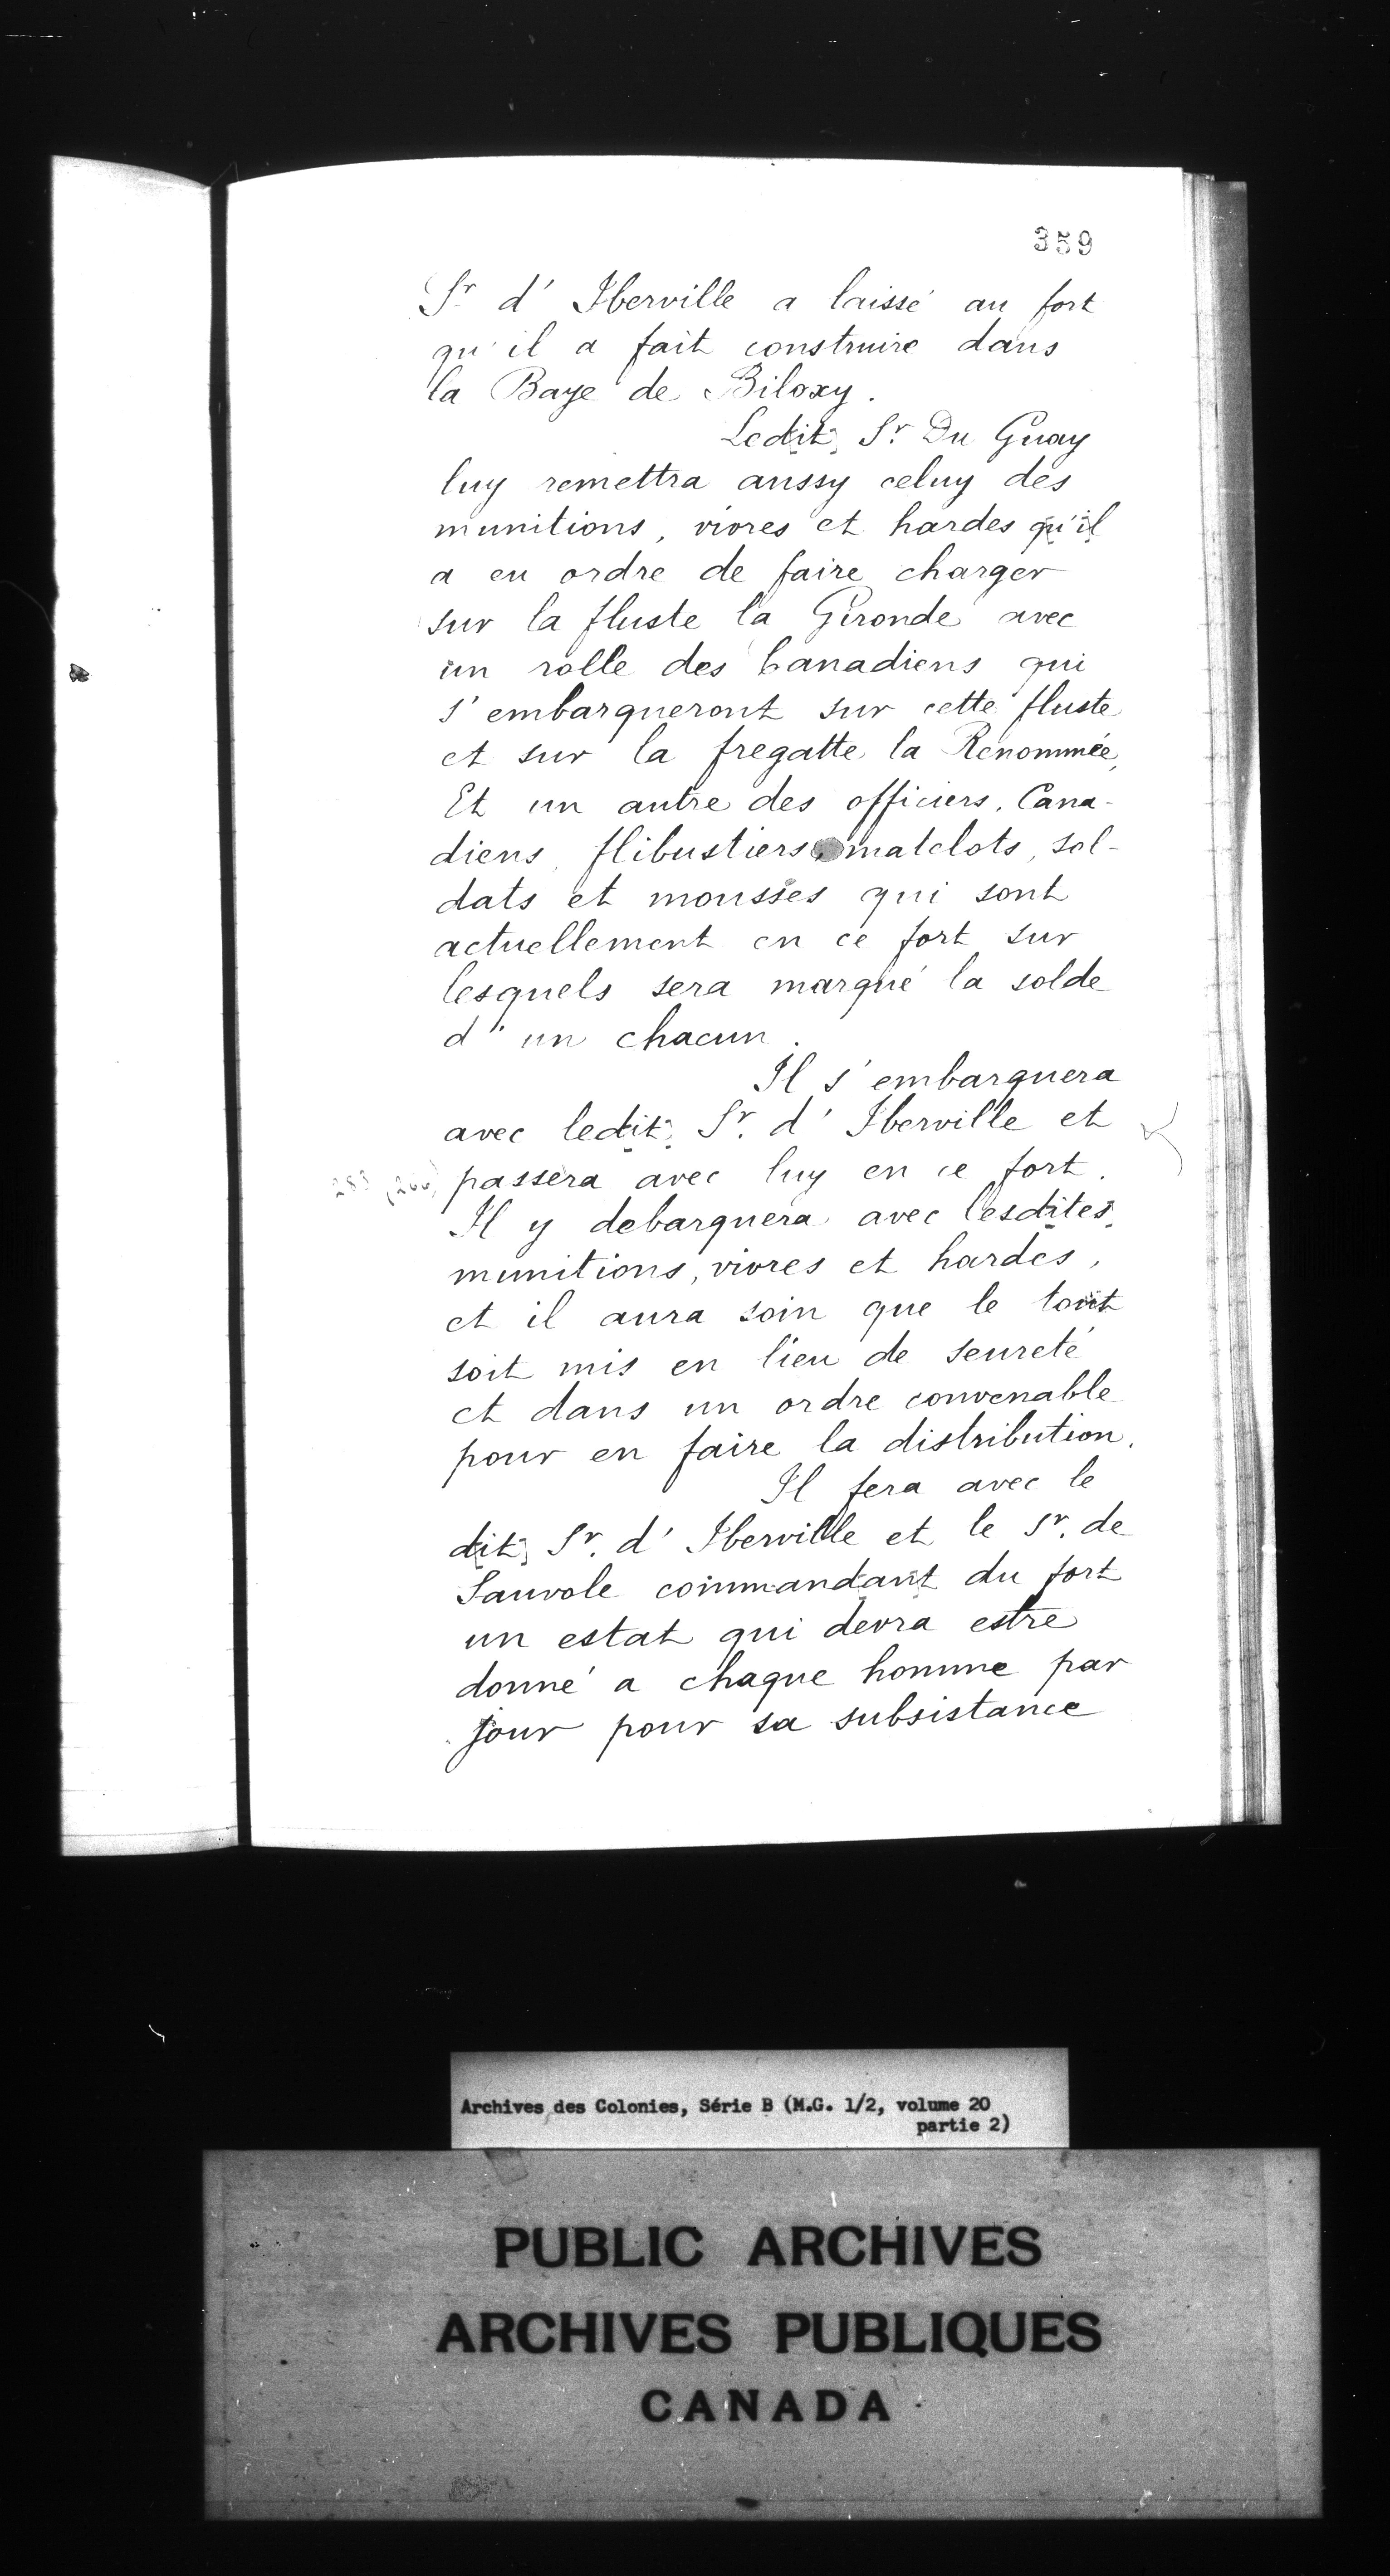 359
Sr d' Iberville a laissé au fort
qu'il a fait construire dans
la Baye de Biloxy.
Ledit Sr. Du Guay
luy remettra aussy celuy des
munitions, vivres et hardes qu'il
a eu ordre de faire charger
sur la fluste la Gironde avec
un rolle des Canadiens qui
s'embarqueront sur cette fluste
et sur la fregatte la Renommée,
Et un autre des officiers, Cana-
diens, flibustiers, matelots, sol-
dats et mousses qui sont
actuellement en ce fort sur
lesquels sera marqué la solde
d'un chacun.
Il s'embarquera
avec ledit Sr. d' Iberville et
passera avec luy en ce fort.
Il y debarquera avec lesdites
munitions, vivres et hardes,
et il aura soin que le tout
soit mis en lieu de seureté
et dans un ordre convenable
pour en faire la distribution.
Il fera avec le
dit Sr. d' Iberville et le sr. de
Sauvole commandant du fort
un estat qui devra estre
donné a chaque homme par
jour pour sa subsistance
Archives des Colonies, Série B (M.G. 1/2, volume 20
partie 2)
PUBLIC ARCHIVES
ARCHIVES PUBLIQUES
CANADA